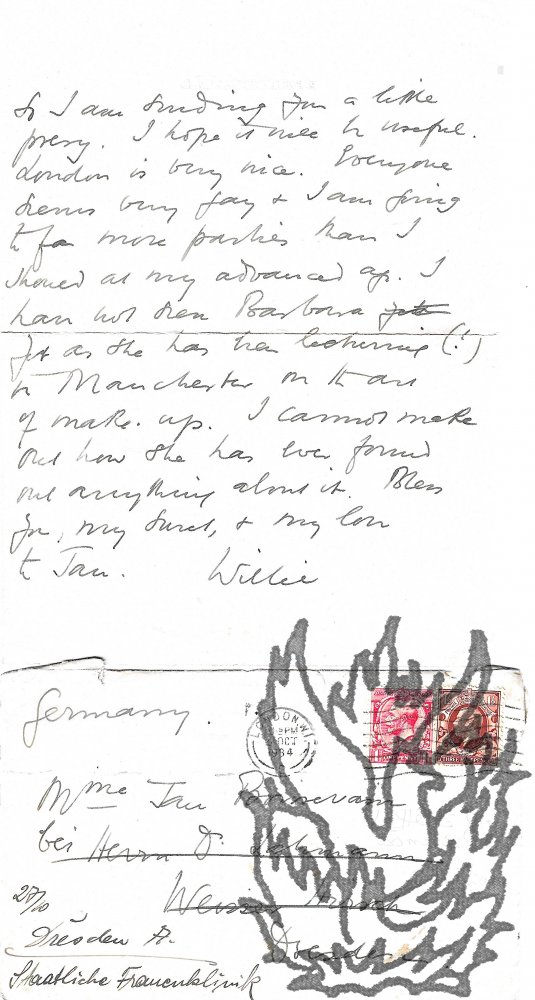 So I am sending you a little
presy. I hope it will be useful.
London is very nice. Everyone
seems very gay & I am going
to far more parties than I
should at my advanced age. I
have not seen Barbara yet
yet as she has been lecturing (!)
in Manchester on the art
of make-up. I cannot make
out how she has ever found
out anything about it. Bless
you, my sweet, & my love
to Jan. Willie
Germany.
LONDON W.1
PM
OCT
1934
Mme Jan
bei Herrn Dr. Lehmann
Weisser Hirsch
27/10
Dresden A. Dresden
Staatliche Frauenklinik